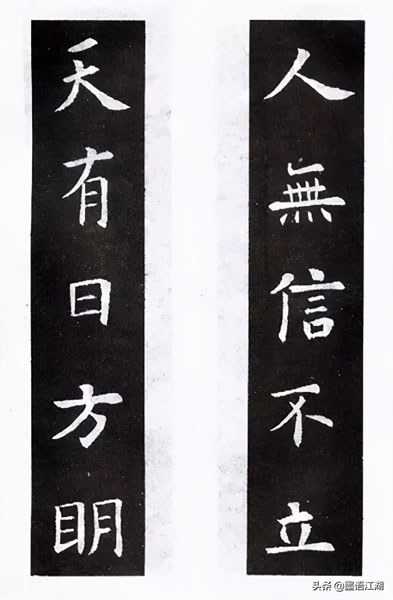 人無信不立
天有日方明
头条@墨语江湖